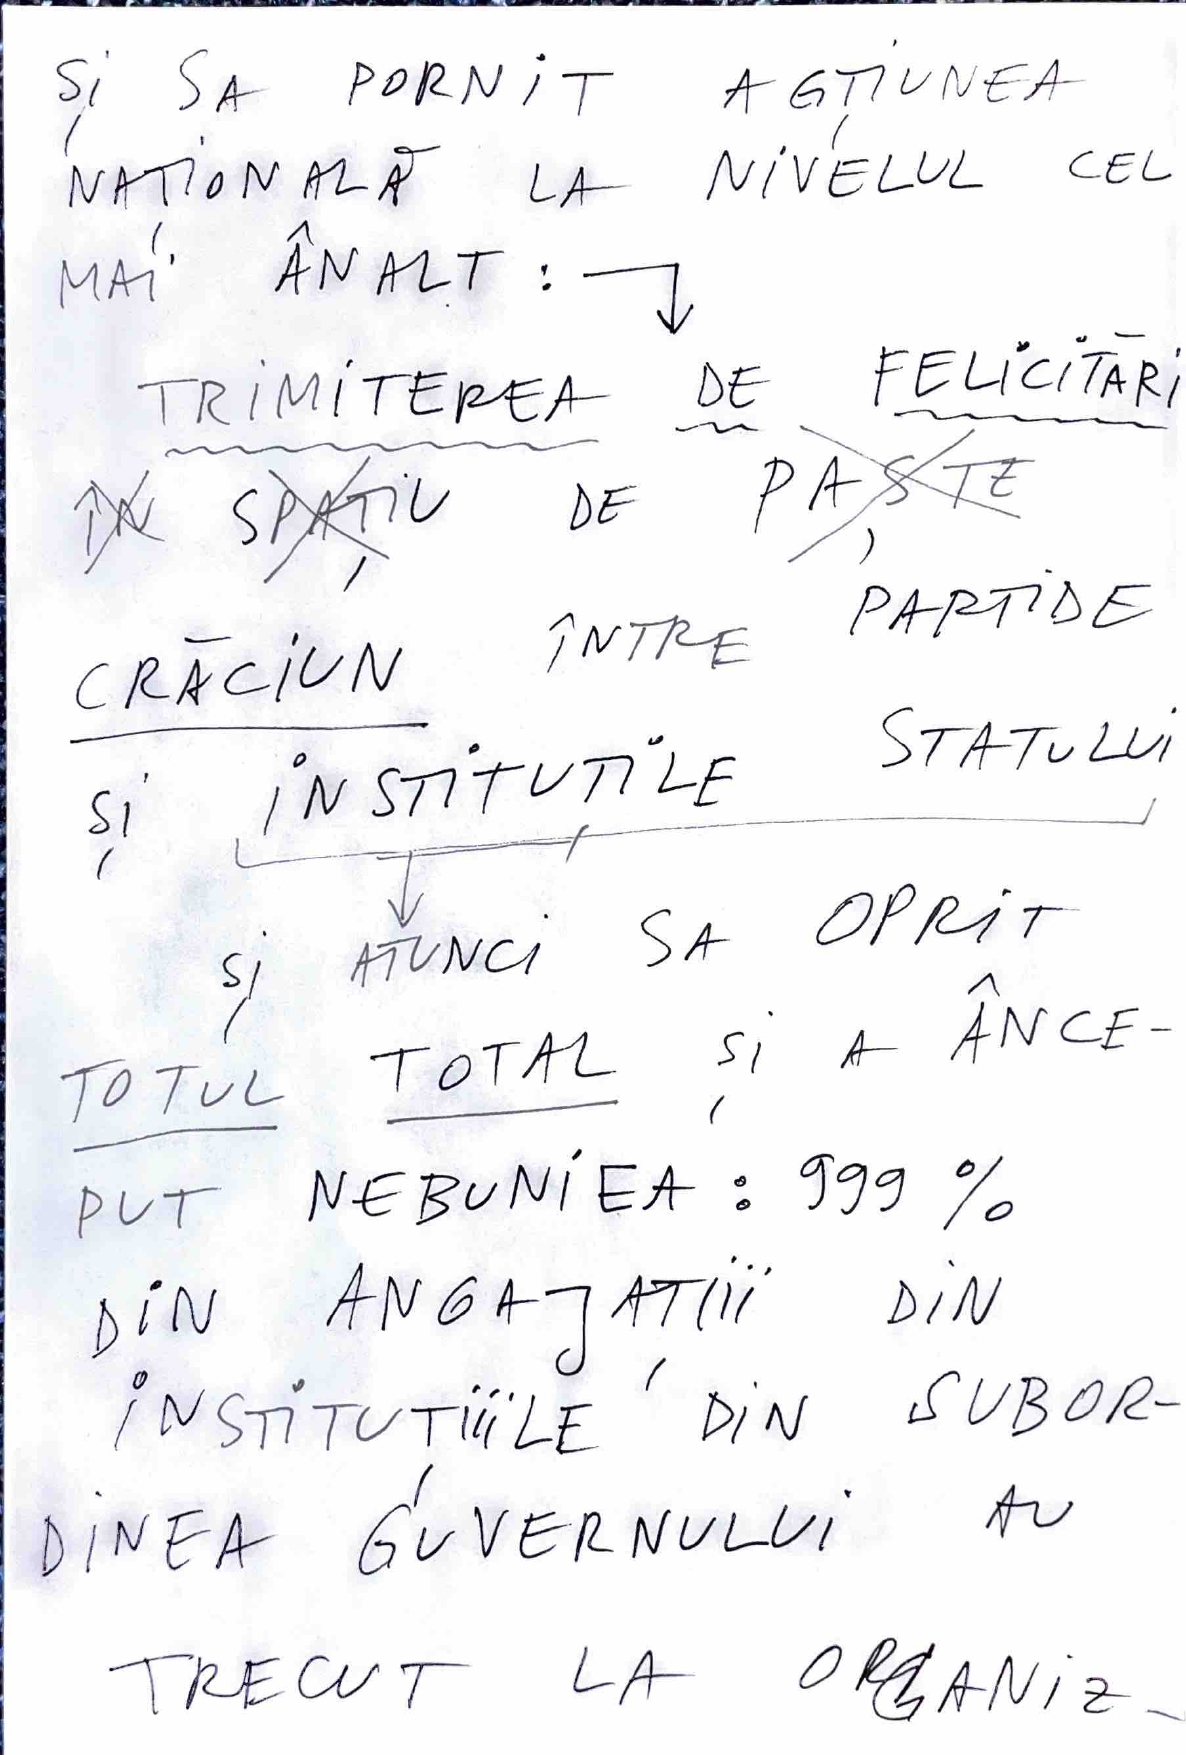 ȘI SA PORNIT AGȚIUNEA
NAȚIONALĂ LA NIVELUL CEL
MAI ÂNALT :
TRIMITEREA DE FELICITĂRI
ÎN SPAȚIU DE PAȘTE
CRĂCIUN ÎNTRE PARTIDE
ȘI INSTITUȚILE STATULUI
ȘI ATUNCI SA OPRIT
TOTUL TOTAL ȘI A ÂNCE-
PUT NEBUNIEA : 999 %
DIN ANGAJAȚIII DIN
INSTITUȚIIILE DIN SUBOR-
DINEA GUVERNULUI AU
TRECUT LA ORGANIZ-